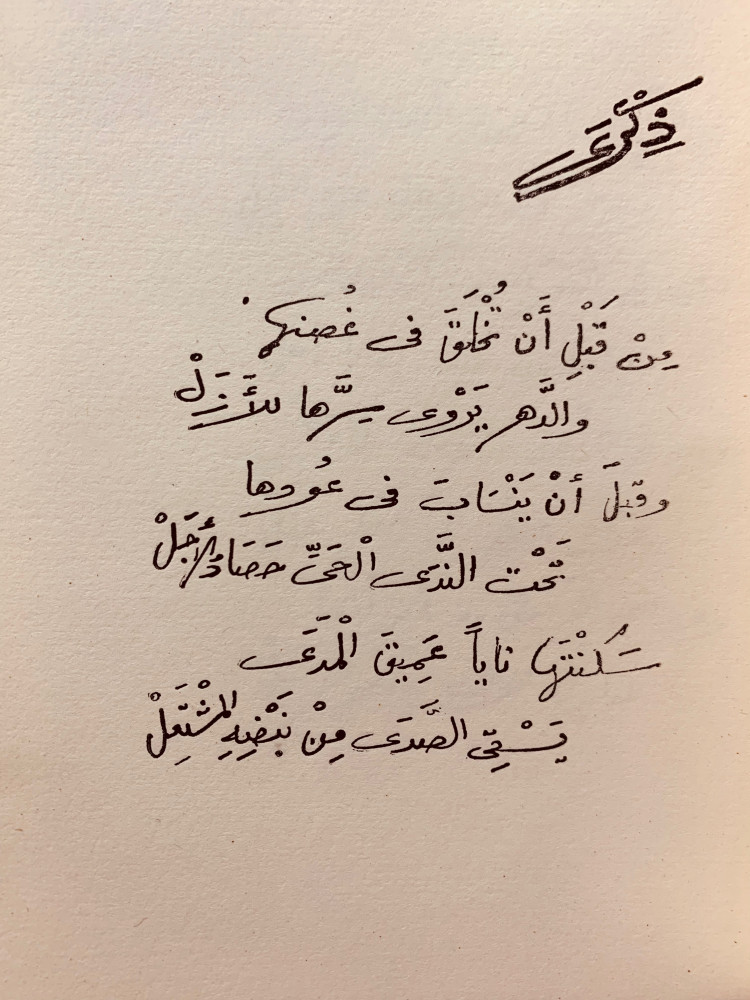 ذِكْرَى
مِنْ قَبْلِ أَنْ تُخْلَقَ فى غُصنها
والدَّهر يَرْوى سِرَّها للأَزَلْ
وقبلَ أنْ يَنْسَابَ فى عُودها
تَحْت النَّدَى الْحَىِّ حَصَادُ الأَجَلْ
سَكَنْتَها ناياً عَمِيقَ الْمَدَى
يَسْقِى الصَّدَى مِنْ نَبْضِهِ المشْتَعِلْ